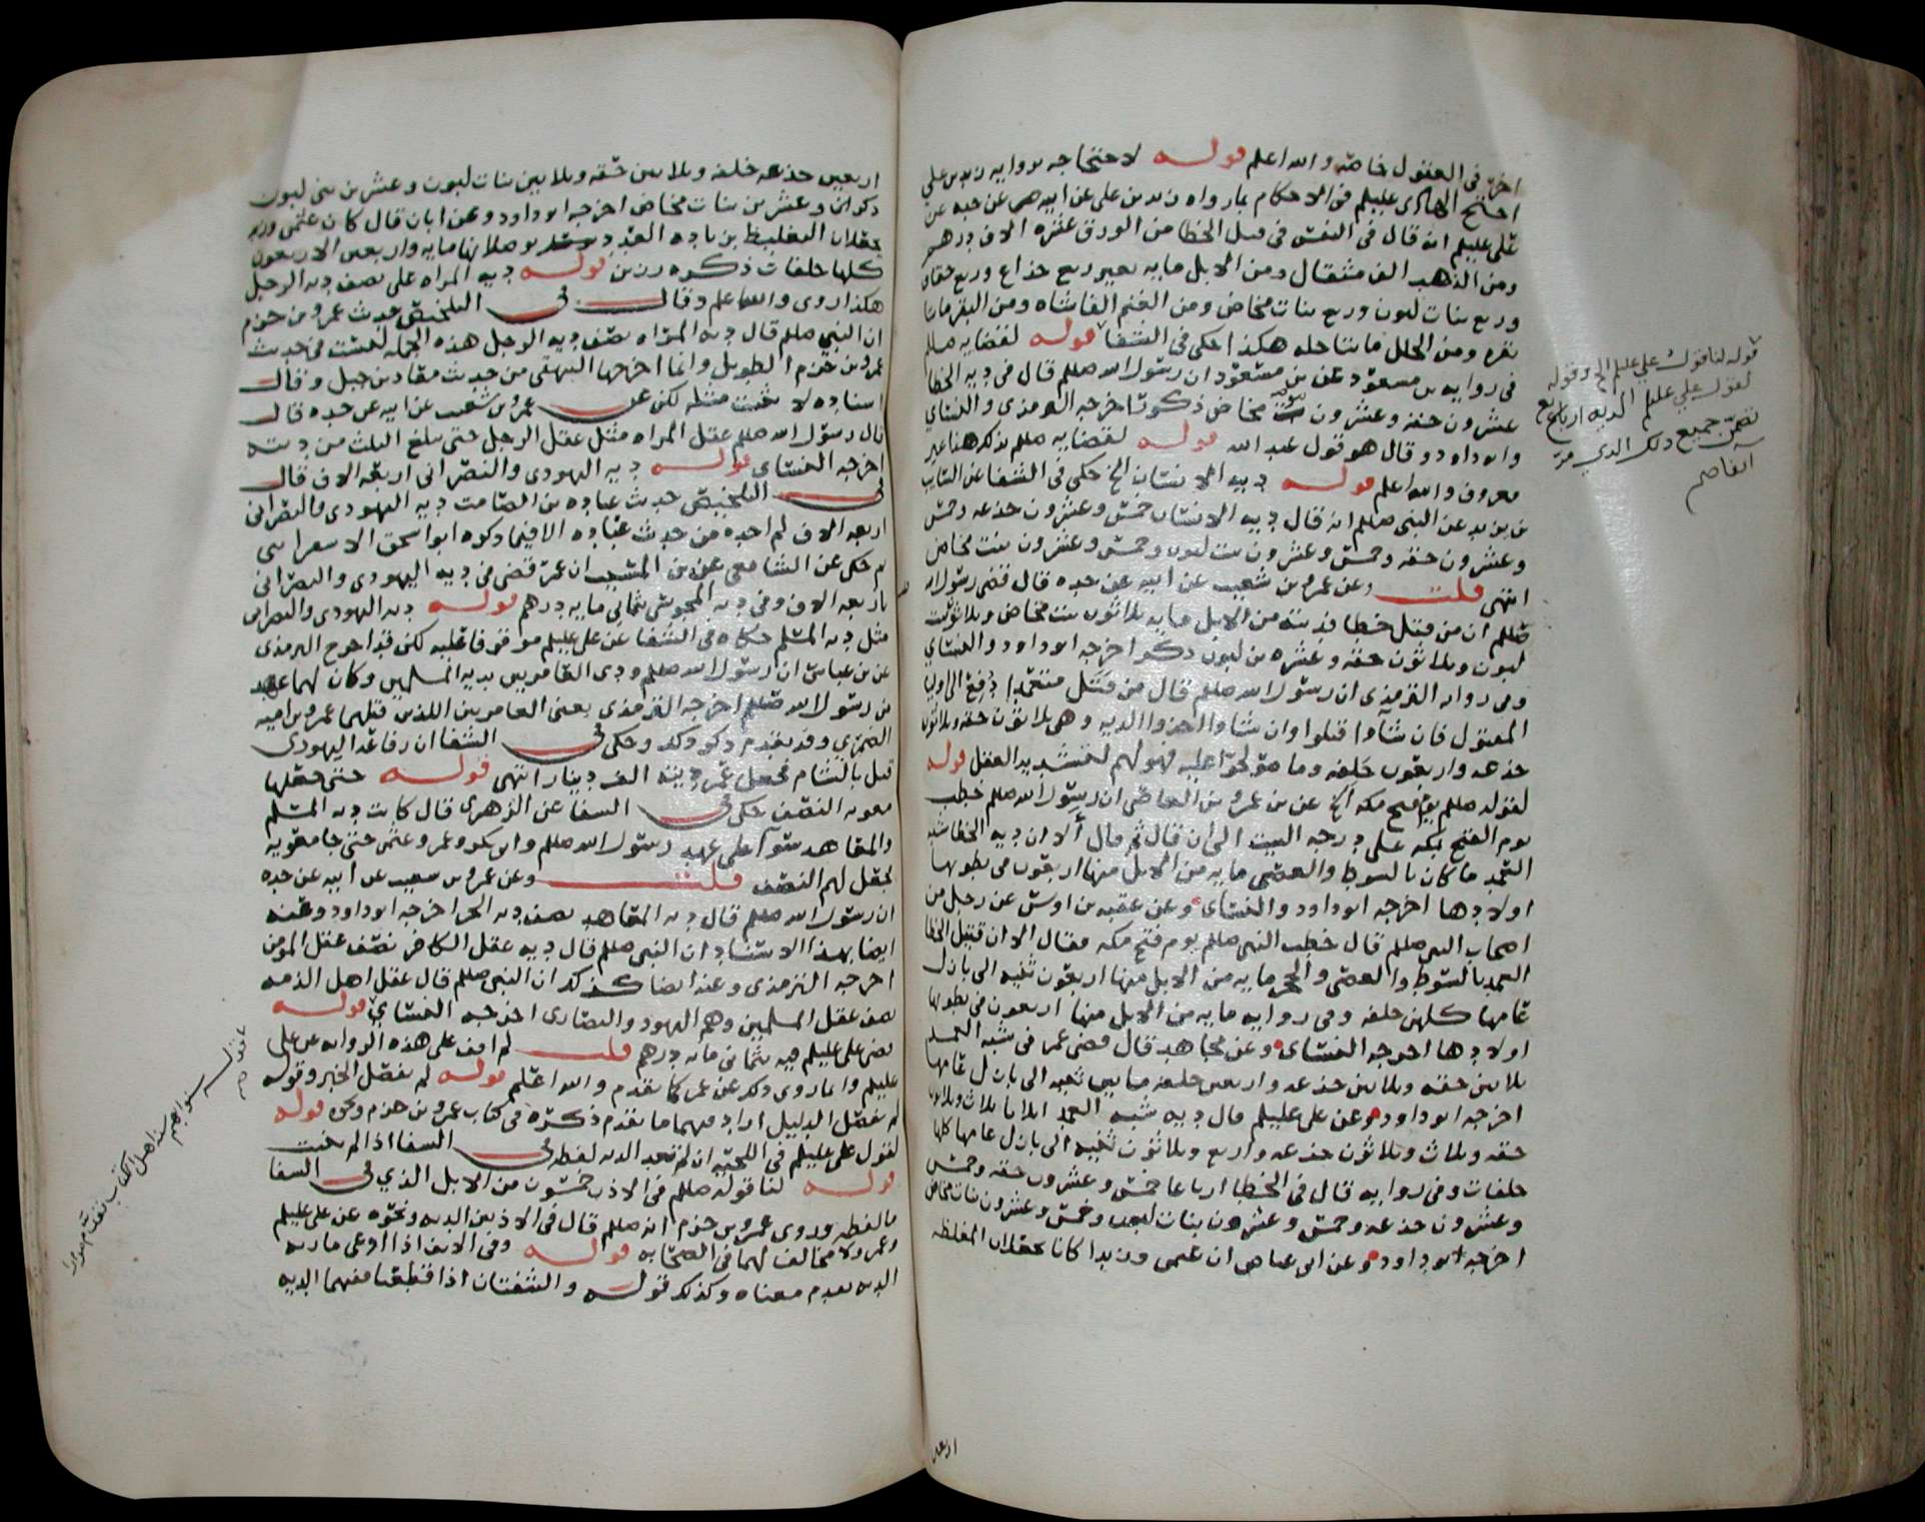 اخرى فى العقول خاصه والله اعلم قوله لاحتجاجه بروايه زيد بن علي
احتج الهادى عليلم فى الاحكام بما رواه زيد بن على عن ابيه عن جده عن
على عليلم انه قال فى النفس فى قتل الخطا من الورق عشره الاف درهم
ومن الذهب الف مثقال ومن الابل مايه بعير ربع جذاع وربع حقاق
وربع بنات لبون وربع بنات مخاض ومن الغنم الفا شاه ومن البقر مايتا
بقره ومن الحلل مايتا حله هكذا حكى فى الشفا قوله لقضايه صللم
فى روايه بن مسعود عن بن مسعود ان رسول الله صللم قال فى ديه الخطا
عشرون حقه وعشرون مخاض ذكورا اخرجه الترمذى والنساي
وابو داود وقال هو قول عبد الله قوله لقضايه صللم بذلك هذا غير
معروف والله اعلم قوله ديه الانسان الخ حكى فى الشفا عن السايب
بن يزيد عن النبى صللم انه قال ديه الانسان خمس وعشرون جذعه وخمس
وعشرون حقه وخمس وعشرون بنت لبون وخمس وعشرون بنت مخاض
انتهى قلت وعن عمرو بن شعيب عن ابيه عن جده قال قضى رسول الله
صللم ان من قتل خطا فديته من الابل مايه ثلاثون بنت مخاض وثلاثون بنت
لبون وثلاثون حقه وعشره بن لبون ذكر اخرجه ابو داود والنساي
وفى روايه الترمذى ان رسول الله صللم قال من قتل متعمدا دفع الى اوليا
المقتول فان شاوا قتلوا وان شاوا اخذوا الديه وهى ثلاثون حقه وثلاثون
جذعه واربعون خلفه وما صولحوا عليه فهو لهم لتشديد العقل قوله
لقوله صللم يوم فتح مكه الخ عن بن عمرو بن العاص ان رسول الله صللم خطب
يوم الفتح بمكه على درجه البيت الى ان قال ثم قال ألا ان ديه الخطا شبه
العمد ما كان بالسوط والعصى مايه من الابل منها اربعون فى بطونها
اولادها اخرجه ابو داود والنساى وعن عقبه بن اوس عن رجل من
اصحاب النبى صللم قال خطب النبى صللم يوم فتح مكه فقال الا ان قتيل الخطا
العمد بالسوط والعصى والحجر مايه من الابل منها اربعون ثنيه الى بازل
عامها كلهن خلفه وفى روايه مايه من الابل منها اربعون فى بطونها
اولادها اخرجه النساى وعن مجاهد قال قضى عمر فى شبه العمد
ثلاثين حقه وثلاثين جذعه واربعين خلفه ما بين ثنيه الى بازل عامها
اخرجه ابو داود وعن على عليلم قال ديه شبه العمد اثلاثا ثلاث وثلاثون
حقه وثلاث وثلاثون جذعه واربع وثلاثون ثنيه الى بازل عامها كلها
خلفات وفى روايه قال فى الخطا ارباعا خمس وعشرون حقه وخمس
وعشرون جذعه وخمس وعشرون بنات لبون وخمس وعشرون بنات مخاض
اخرجه ابو داود وعن ابى عياض ان عثمن وزيدا كانا يجعلان المغلظه
اربعين
قوله لنا قول علي عليلم الخ وقوله
لقول علي عليلم الديه ارباع
تضمن جميع ذلك الذي مر
انفا صم
اربعين جذعه خلفه وثلاثين حقه وثلاثين بنات لبون وعشرين بنى لبون
ذكران وعشرين بنات مخاض اخرجه ابو داود وعن ابان قال كان عثمن وزيد
كلها خلفات ذكره رزين قوله ديه المراه على نصف ديه الرجل
هكذا روى والله اعلم وقال فى التلخيص حديث عمرو بن حزم
ان النبي صللم قال ديه المراه نصف ديه الرجل هذه الجمله ليست فى حديث
عمرو بن حزم الطويل وانما اخرجها البيهقى من حديث معاذ بن جبل وقال
اسناده لا يثبت مثله لكن عن عمرو بن شعيب عن ابيه عن جده قال
قال رسول الله صللم عقل المراه مثل عقل الرجل حتى يبلغ الثلث من ديته
اخرجه النساى قوله ديه اليهودى والنصرانى اربعه الاف قال
فى التلخيص حديث عباده بن الصامت ديه اليهودى والنصرانى
اربعه الاف لم اجده من حديث عباده الا فيما ذكره ابو اسحق الاسفراينى
ثم حكى عن الشافعى عن بن المسيب ان عمر قضى فى ديه اليهودى والنصرانى
باربعه الاف وفى ديه المجوسى ثمانى مايه درهم قوله ديه اليهودى والنصرانى
مثل ديه المسلم حكاه فى الشفا عن على عليلم موقوفا عليه لكن قد اخرج الترمذى
عن بن عباس ان رسول الله صللم ودى العامريين بديه المسلمين وكان لهما عهد
من رسول الله صللم اخرجه الترمذى يعنى العامريين اللذين قتلهما عمرو بن اميه
الضمرى وقد تقدم ذكر ذلك وحكى فى الشفا ان رفاعه اليهودى
قتل بالشام فجعل عمر ديته الف دينار انتهى قوله حتى جعلها
معويه النصف حكى فى الشفا عن الزهرى قال كانت ديه المسلم
والمعاهد سوآ على عهد رسول الله صللم وابى بكر وعمر وعثمن حتى جا معويه
فجعل لهم النصف قلت وعن عمرو بن شعيب عن ابيه عن جده
ان رسول الله صللم قال ديه المعاهد نصف ديه الحر اخرجه ابو داود وعنه
ايضا بهذا الاسناد ان النبى صللم قال ديه عقل الكافر نصف عقل المومن
اخرجه الترمذى وعنه ايضا كذلك ان النبى صللم قال عقل اهل الذمه
نصف عقل المسلمين وهم اليهود والنصارى اخرجه النساي قوله
لم اقف على هذه الروايه عن على
عليلم وانما روى ذلك عن عمر كما تقدم والله اعلم قوله لم يفصل الخبر وقوله
لم يفصل الدليل اراد بهما ما تقدم ذكره فى كتاب عمرو بن حزم ونحوه قوله
لقول على عليلم فى اللحيه ان لم تعد الديه لفظه فى الشفا اذا لم تنبت
قوله لنا قوله صللم فى الاذن خمسون من الابل الذي فى الشفا
ما لفظه وروى عمرو بن حزم انه صللم قال فى الاذنين الديه ونحوه عن على عليلم
وعمر ولا مخالف لهما فى الصحابه قوله وفى الانف اذا اوعى مارنه
الديه تقدم معناه وكذلك قوله والشفتان اذا قطعتا ففيهما الديه